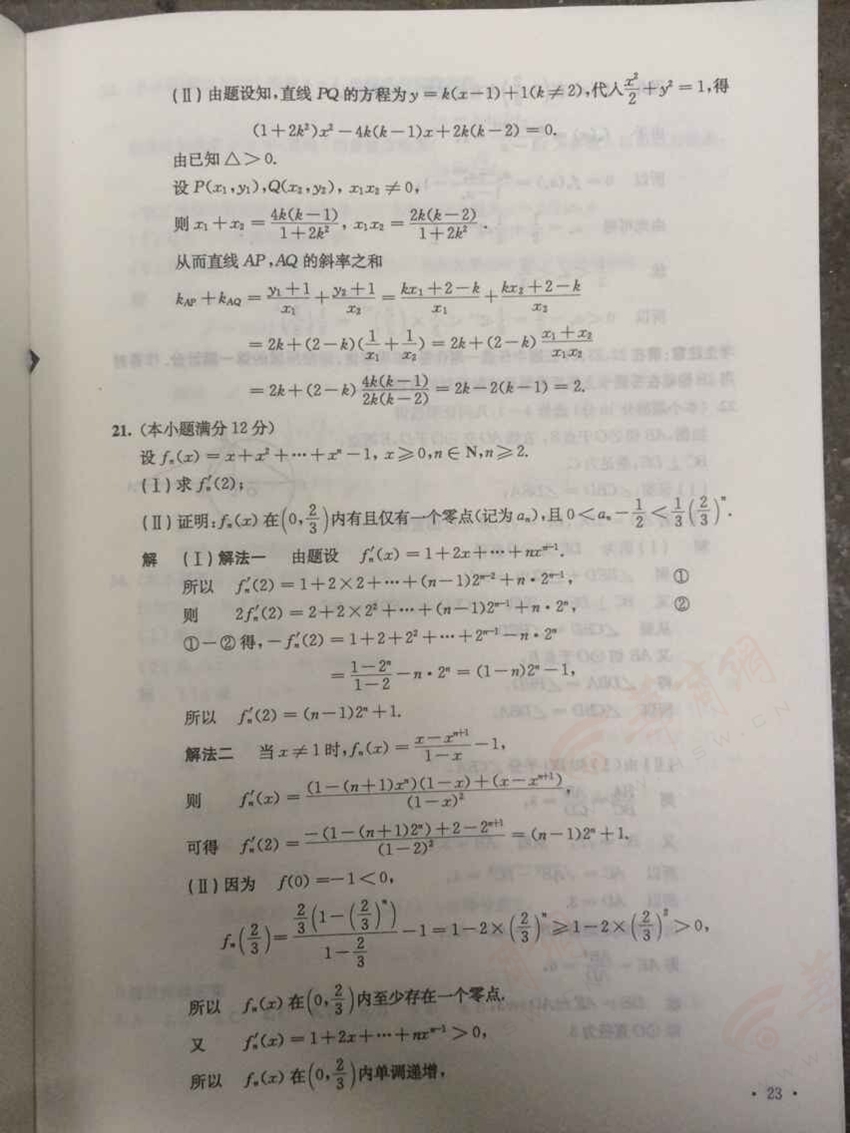 (Ⅱ)由题设知,直线 PQ 的方程为 y = k(x-1)+1(k≠2),代入 x²/2 + y² = 1,得
(1+2k²)x²-4k(k-1)x+2k(k-2) = 0.
由已知 △>0.
设 P(x₁,y₁),Q(x₂,y₂), x₁x₂ ≠ 0,
则 x₁+x₂ = 4k(k-1)/(1+2k²), x₁x₂ = 2k(k-2)/(1+2k²).
从而直线 AP,AQ 的斜率之和
k_AP + k_AQ = (y₁+1)/x₁ + (y₂+1)/x₂ = (kx₁+2-k)/x₁ + (kx₂+2-k)/x₂
= 2k+(2-k)(1/x₁ + 1/x₂) = 2k+(2-k) (x₁+x₂)/(x₁x₂)
= 2k+(2-k) 4k(k-1)/2k(k-2) = 2k-2(k-1) = 2.
21. (本小题满分 12 分)
设 fₙ(x) = x+x²+⋯+xⁿ-1, x≥0,n∈N,n≥2.
(Ⅰ)求 fₙ′(2);
(Ⅱ)证明:fₙ(x)在(0, 2/3)内有且仅有一个零点(记为 aₙ),且 0<aₙ-1/2<1/3(2/3)ⁿ.
解 (Ⅰ)解法一 由题设 fₙ′(x) = 1+2x+⋯+nxⁿ⁻¹.
所以 fₙ′(2) = 1+2×2+⋯+(n-1)2ⁿ⁻²+n·2ⁿ⁻¹, ①
则 2fₙ′(2) = 2+2×2²+⋯+(n-1)2ⁿ⁻¹+n·2ⁿ, ②
①-②得,-fₙ′(2) = 1+2+2²+⋯+2ⁿ⁻¹-n·2ⁿ
= (1-2ⁿ)/(1-2) -n·2ⁿ = (1-n)2ⁿ-1,
所以 fₙ′(2) = (n-1)2ⁿ+1.
解法二 当 x≠1 时,fₙ(x) = (x-xⁿ⁺¹)/(1-x) -1,
则 fₙ′(x) = ((1-(n+1)xⁿ)(1-x)+(x-xⁿ⁺¹))/(1-x)²,
可得 fₙ′(2) = (-(1-(n+1)2ⁿ)+2-2ⁿ⁺¹)/(1-2)² = (n-1)2ⁿ+1.
(Ⅱ)因为 f(0) =-1<0,
fₙ(2/3) = (2/3(1-(2/3)ⁿ))/(1-2/3) -1 = 1-2×(2/3)ⁿ≥1-2×(2/3)²>0,
所以 fₙ(x)在(0, 2/3)内至少存在一个零点.
又 fₙ′(x) = 1+2x+⋯+nxⁿ⁻¹>0,
所以 fₙ(x)在(0, 2/3)内单调递增,
· 23 ·